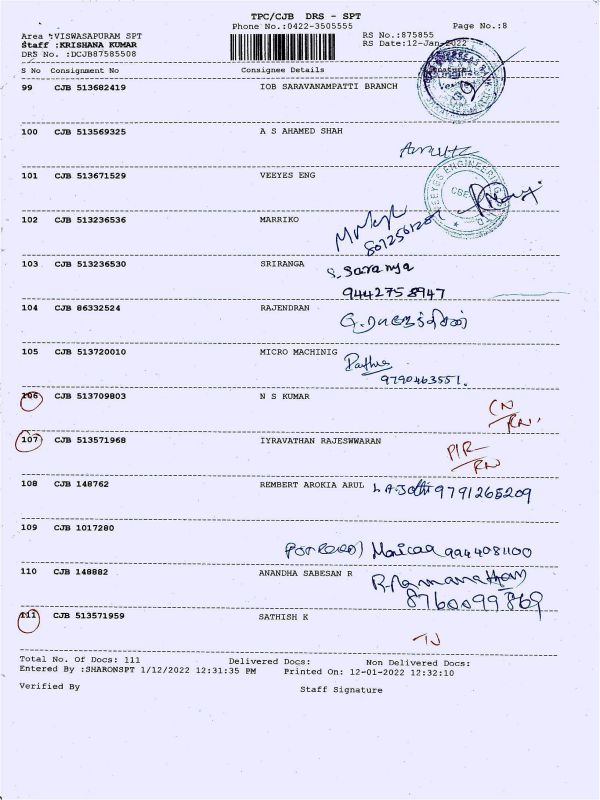 TPC/CJB DRS - SPT
Phone No.:0422-3505555
Page No.:8
Area :VISWASAPURAM SPT
RS No.:875855
Staff :KRISHANA KUMAR
RS Date:12-Jan-2022
DRS No. :DCJB87585508
S No Consignment No Consignee Details Signature
99 CJB 513682419 IOB SARAVANAMPATTI BRANCH
100 CJB 513569325 A S AHAMED SHAH
101 CJB 513671529 VEEYES ENG
102 CJB 513236536 MARRIKO
103 CJB 513236530 SRIRANGA
S. Saranya
9442758947
104 CJB 86332524 RAJENDRAN
105 CJB 513720010 MICRO MACHINIG
9790463551.
106 CJB 513709803 N S KUMAR
CN
RN
107 CJB 513571968 IYRAVATHAN RAJESWWARAN
PIR
RN
108 CJB 148762 REMBERT AROKIA ARUL 9791265209
109 CJB 1017280
9944081100
110 CJB 148882 ANANDHA SABESAN R
R. Ramanathan
8760099869
111 CJB 513571959 SATHISH K
TJ
Total No. Of Docs: 111 Delivered Docs: Non Delivered Docs:
Entered By :SHARONSPT 1/12/2022 12:31:35 PM Printed On: 12-01-2022 12:32:10
Verified By Staff Signature